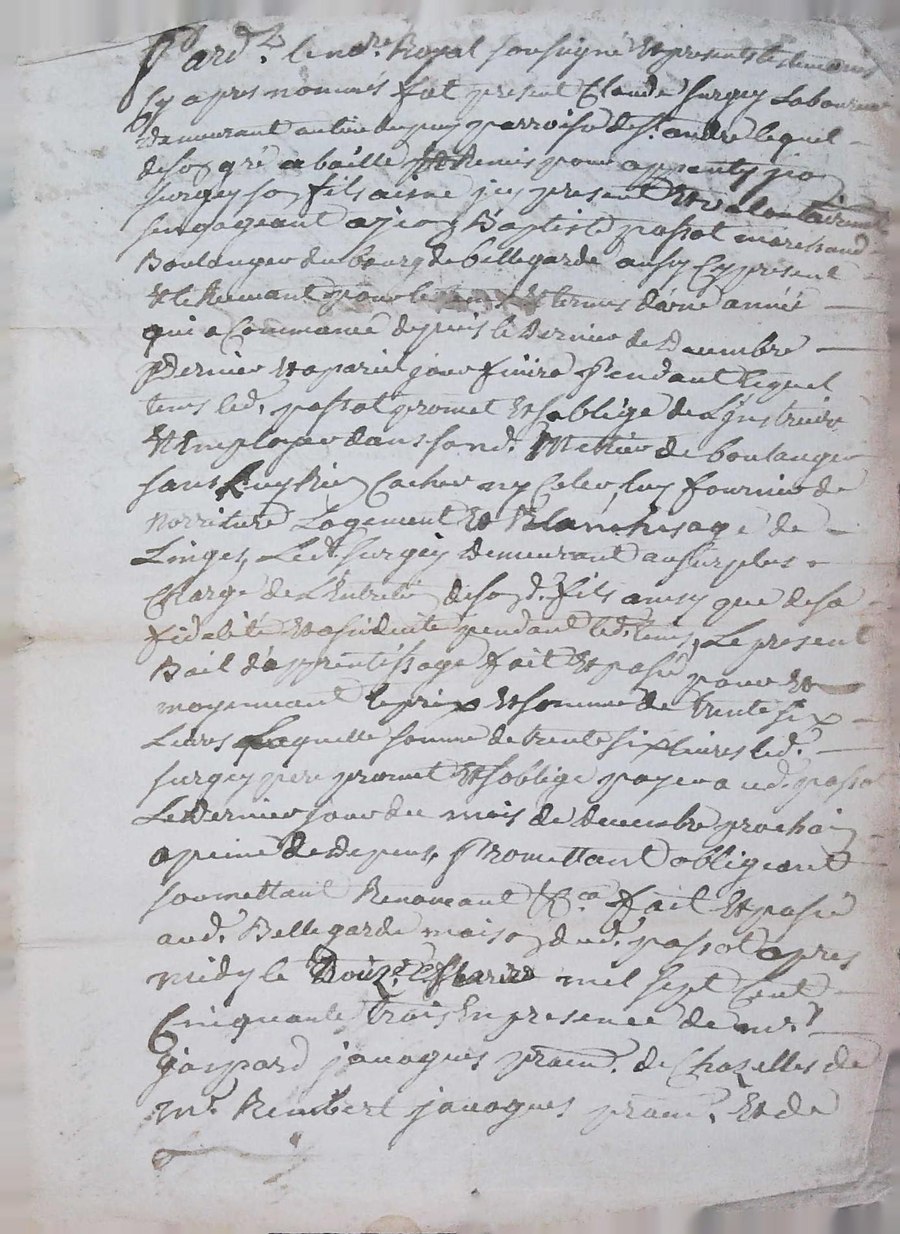 Pard.t le no.re Royal soussigné et presents les temoins
cy apres nommés fut present Claude surgey Laboureur
demeurant au lieu du puy parroisse de s.t andre lequel
de son gré a baillé et Remis pour apprenty jean
surgey son fils aisné icy present et volontairement
sengageant a jean Baptiste passot marchand
Boulanger du bourg de bellegarde aussy cy present
et le Retenant pour le tems et termes d'une année
qui a Commancé depuis le dernier de Decembre
Dernier et a pareil jour finira Pendant lequel
tems led. passot promet et soblige de L'instruire
et Employer dans sond. Mettier de boulanger
sans luy Rien Cacher ny Celer, luy fournir de
norriture Logement et Blanchisage de
Linges, Ledt. surgey demeurant au surplus
Chargé de L'entretien de sond. fils ainsy que de sa
fidelité et asiduité pendant led. tems, Le present
Bail d'apprentissage fait et passé pour et
moyennant le prix et somme de trente six
Livres Laquelle somme de trente six livres led.
surgey pere promet et soblige payer aud. passot
Le dernier jour du mois de decembre prochain
a peine de depens, Promettant obligeant
soumettant Renonçant &ca fait et passé
aud. Bellegarde maison dud. passot apres
midy le Douze fevrier mil sept Cent
Cinquante trois En presence de m.r
gaspard jauagues pratn. de Chazelles de
m.e Rembert jauagues pratn. et de